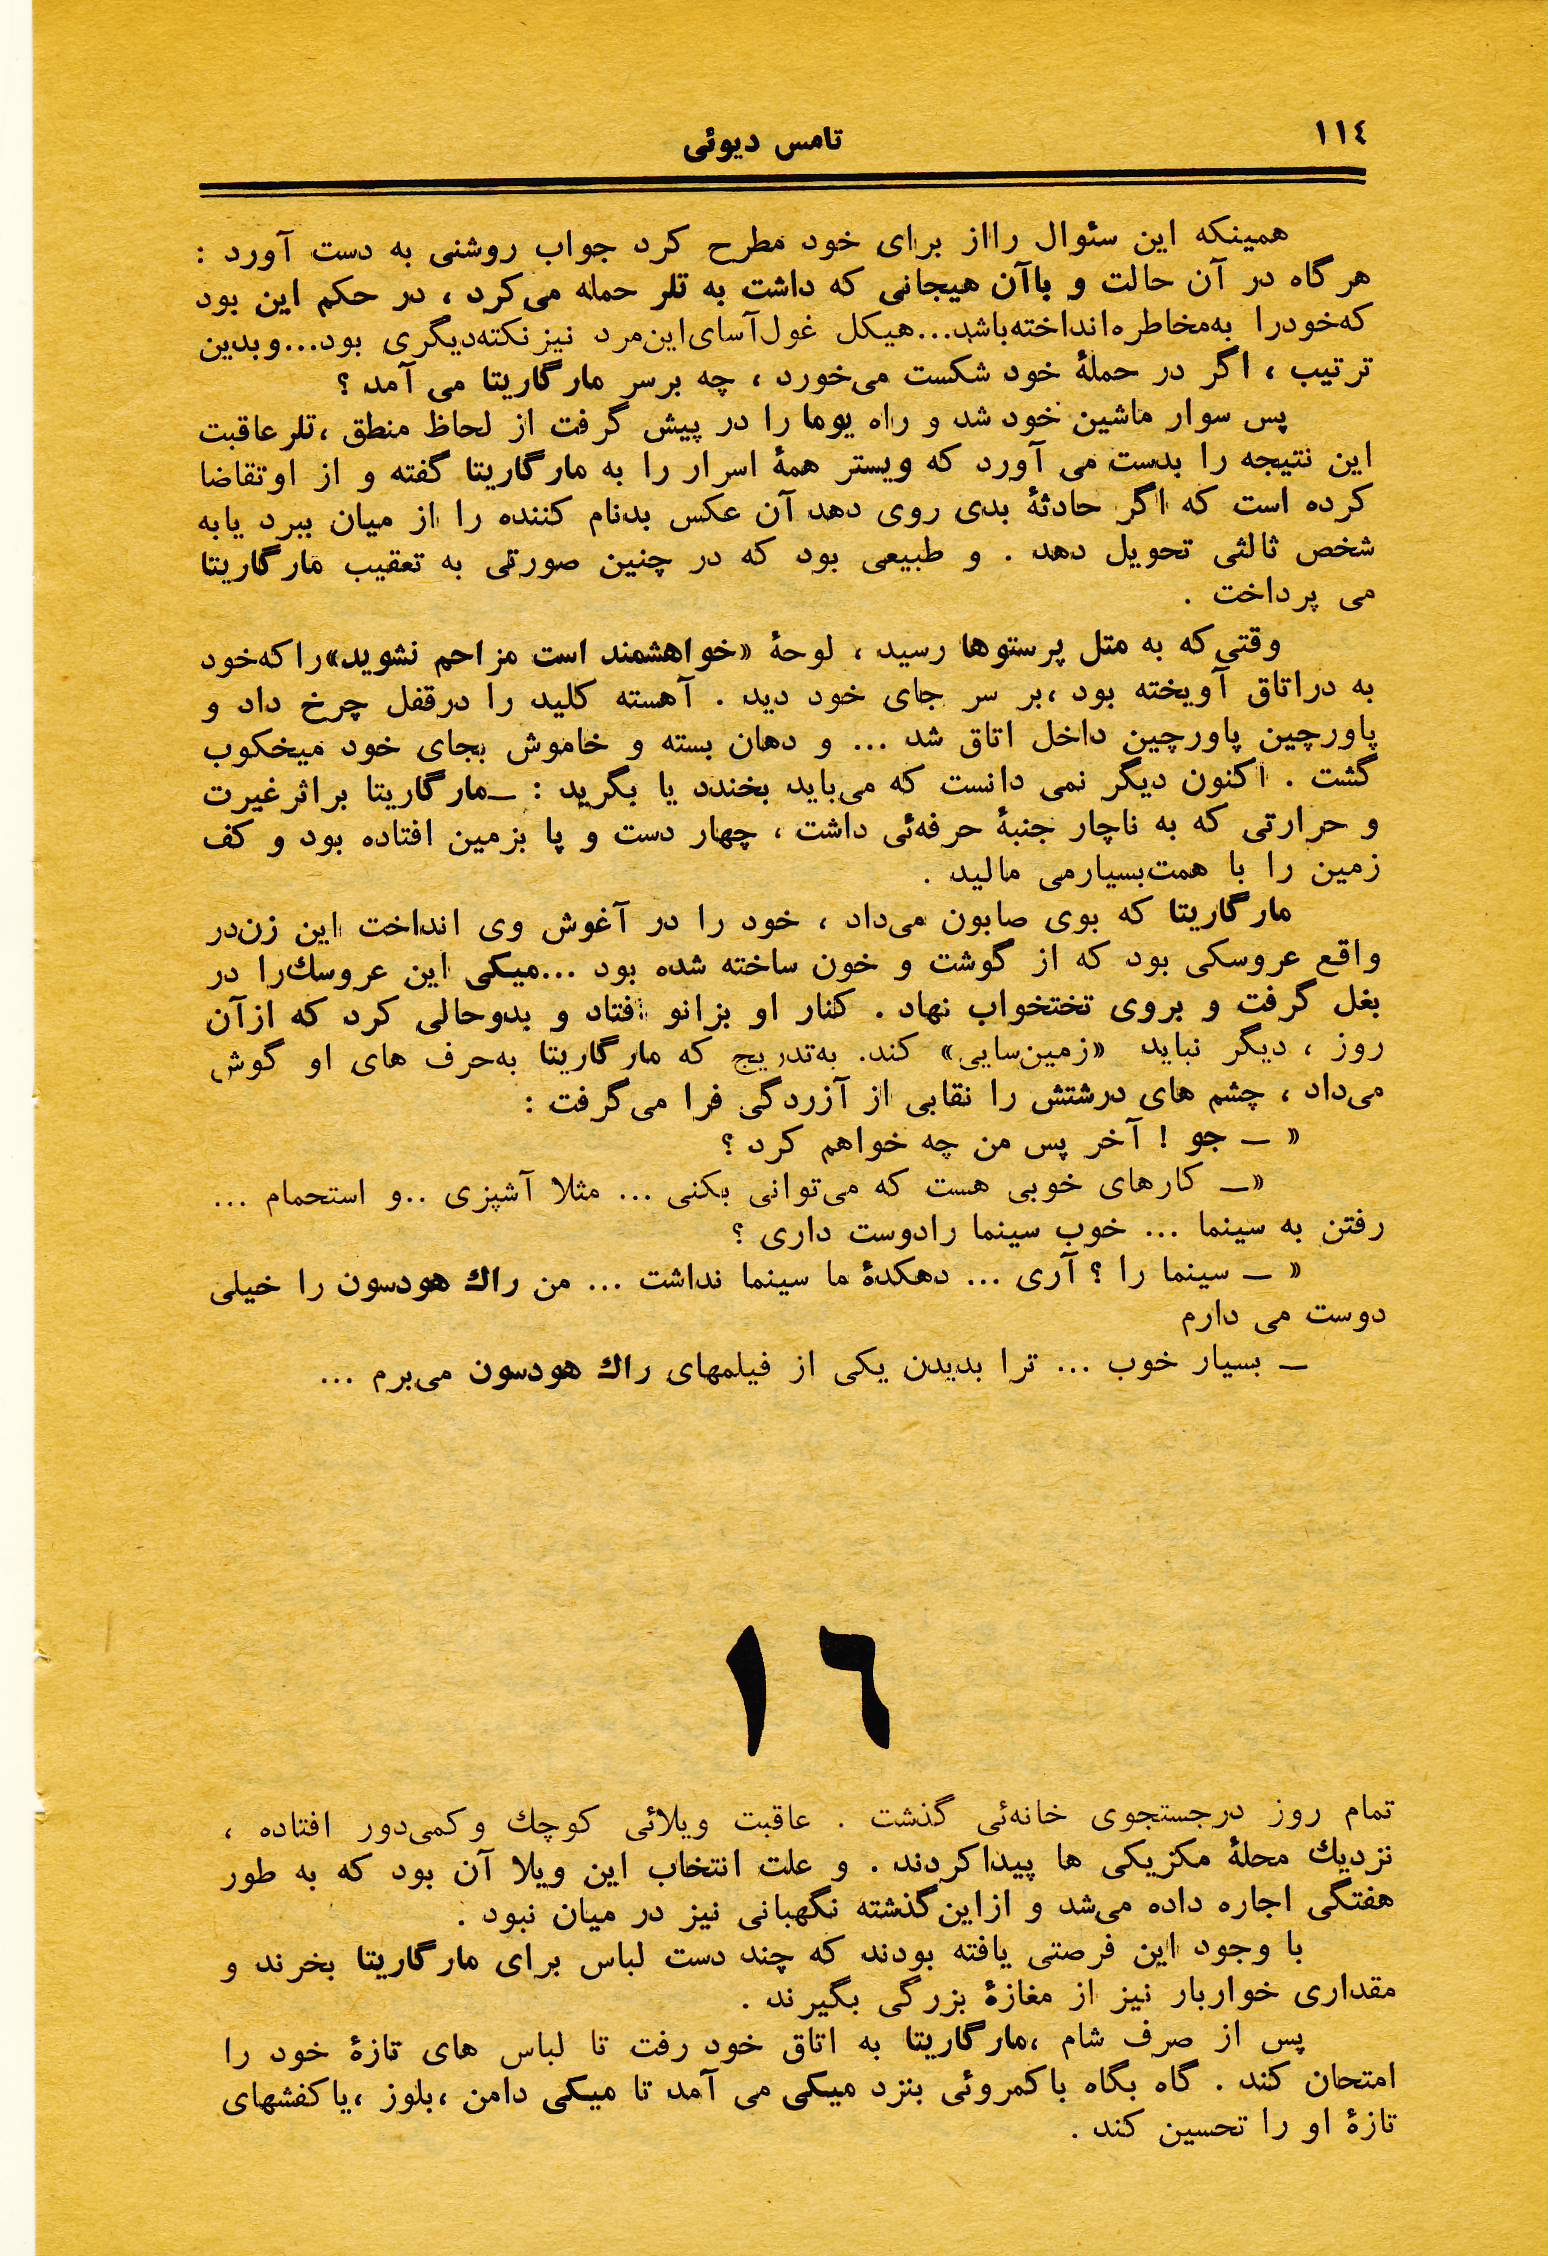 ١١٤
تامس دیوئی
همینکه این سئوال رااز برای خود مطرح کرد جواب روشنی به دست آورد :
هرگاه در آن حالت و باآن هیجانی که داشت به تلر حمله می‌کرد ، در حکم این بود
که‌خودرا به‌مخاطره‌انداخته‌باشد...هیکل غول‌آسای‌این‌مرد نیزنکته‌دیگری بود...وبدین
ترتیب ، اگر در حملهٔ خود شکست می‌خورد ، چه برسر مارگاریتا می آمد ؟
پس سوار ماشین خود شد و راه یوما را در پیش گرفت از لحاظ منطق ،تلرعاقبت
این نتیجه را بدست می آورد که ویستر همهٔ اسرار را به مارگاریتا گفته و از اوتقاضا
کرده است که اگر حادثهٔ بدی روی دهد آن عکس بدنام کننده را از میان ببرد یابه
شخص ثالثی تحویل دهد . و طبیعی بود که در چنین صورتی به تعقیب مارگاریتا
می پرداخت .
وقتی‌که به متل پرستوها رسید ، لوحهٔ «خواهشمند است مزاحم نشوید»راکه‌خود
به دراتاق آویخته بود ،بر سر جای خود دید . آهسته کلید را درقفل چرخ داد و
پاورچین پاورچین داخل اتاق شد ... و دهان بسته و خاموش بجای خود میخکوب
گشت . اکنون دیگر نمی دانست که می‌باید بخندد یا بگرید : ــ‌مارگاریتا براثرغیرت
و حرارتی که به ناچار جنبهٔ حرفه‌ئی داشت ، چهار دست و پا بزمین افتاده بود و کف
زمین را با همت‌بسیارمی مالید .
مارگاریتا که بوی صابون می‌داد ، خود را در آغوش وی انداخت این زن‌در
واقع عروسکی بود که از گوشت و خون ساخته شده بود ...میکی این عروسك‌را در
بغل گرفت و بروی تختخواب نهاد . کنار او بزانو افتاد و بدوحالی کرد که ازآن
روز ، دیگر نباید «زمین‌سایی» کند. به‌تدریج که مارگاریتا به‌حرف های او گوش
می‌داد ، چشم های درشتش را نقابی از آزردگی فرا می‌گرفت :
« ــ جو ! آخر پس من چه خواهم کرد ؟
«ــ کارهای خوبی هست که می‌توانی بکنی ... مثلا آشپزی ..و استحمام ...
رفتن به سینما ... خوب سینما رادوست داری ؟
« ــ سینما را ؟ آری ... دهکدهٔ ما سینما نداشت ... من راك هودسون را خیلی
دوست می دارم
ــ بسیار خوب ... ترا بدیدن یکی از فیلمهای راك هودسون می‌برم ...
١٦
تمام روز درجستجوی خانه‌ئی گذشت . عاقبت ویلائی کوچك وکمی‌دور افتاده ،
نزدیك محلهٔ مکزیکی ها پیداکردند . و علت انتخاب این ویلا آن بود که به طور
هفتگی اجاره داده می‌شد و ازاین‌گذشته نگهبانی نیز در میان نبود .
با وجود این فرصتی یافته بودند که چند دست لباس برای مارگاریتا بخرند و
مقداری خواربار نیز از مغازهٔ بزرگی بگیرند .
پس از صرف شام ،مارگاریتا به اتاق خود رفت تا لباس های تازهٔ خود را
امتحان کند . گاه بگاه باکمروئی بنزد میکی می آمد تا میکی دامن ،بلوز ،یاکفشهای
تازهٔ او را تحسین کند .